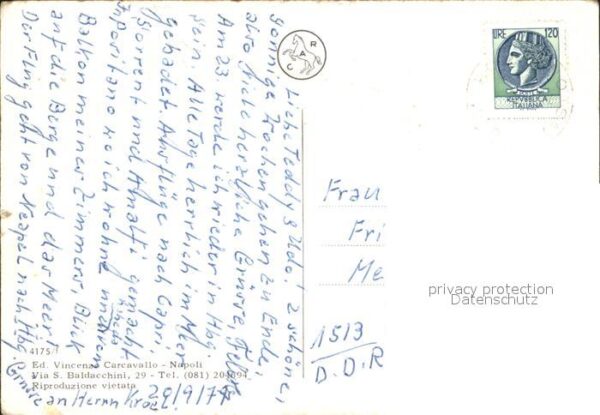 Liebe Teddy & Udo! 2 schöne,
sonnige Wochen gehen zu Ende,
also viele herzliche Grüsse,
Am 23. werde ich wieder in Hbg.
sein. Alle Tage herrlich im Meer
gebadet. Ausflüge nach Capri,
Sorrent und Amalfi gemacht.
In Positano wo ich wohne
Balkon meines Zimmers, Blick
auf die Berge und das Meer!
Der Flug geht von Neapel nach Hbg
Grüsse an Herrn
29/9/77
CAR
LIRE 120
REPVBBLICA
ITALIANA
Frau
Fri
Me
1513
D.D.R
privacy protection
Datenschutz
4175/
Ed. Vincenzo Carcavallo - Napoli
Via S. Baldacchini, 29 - Tel. (081) 204694
Riproduzione vietata